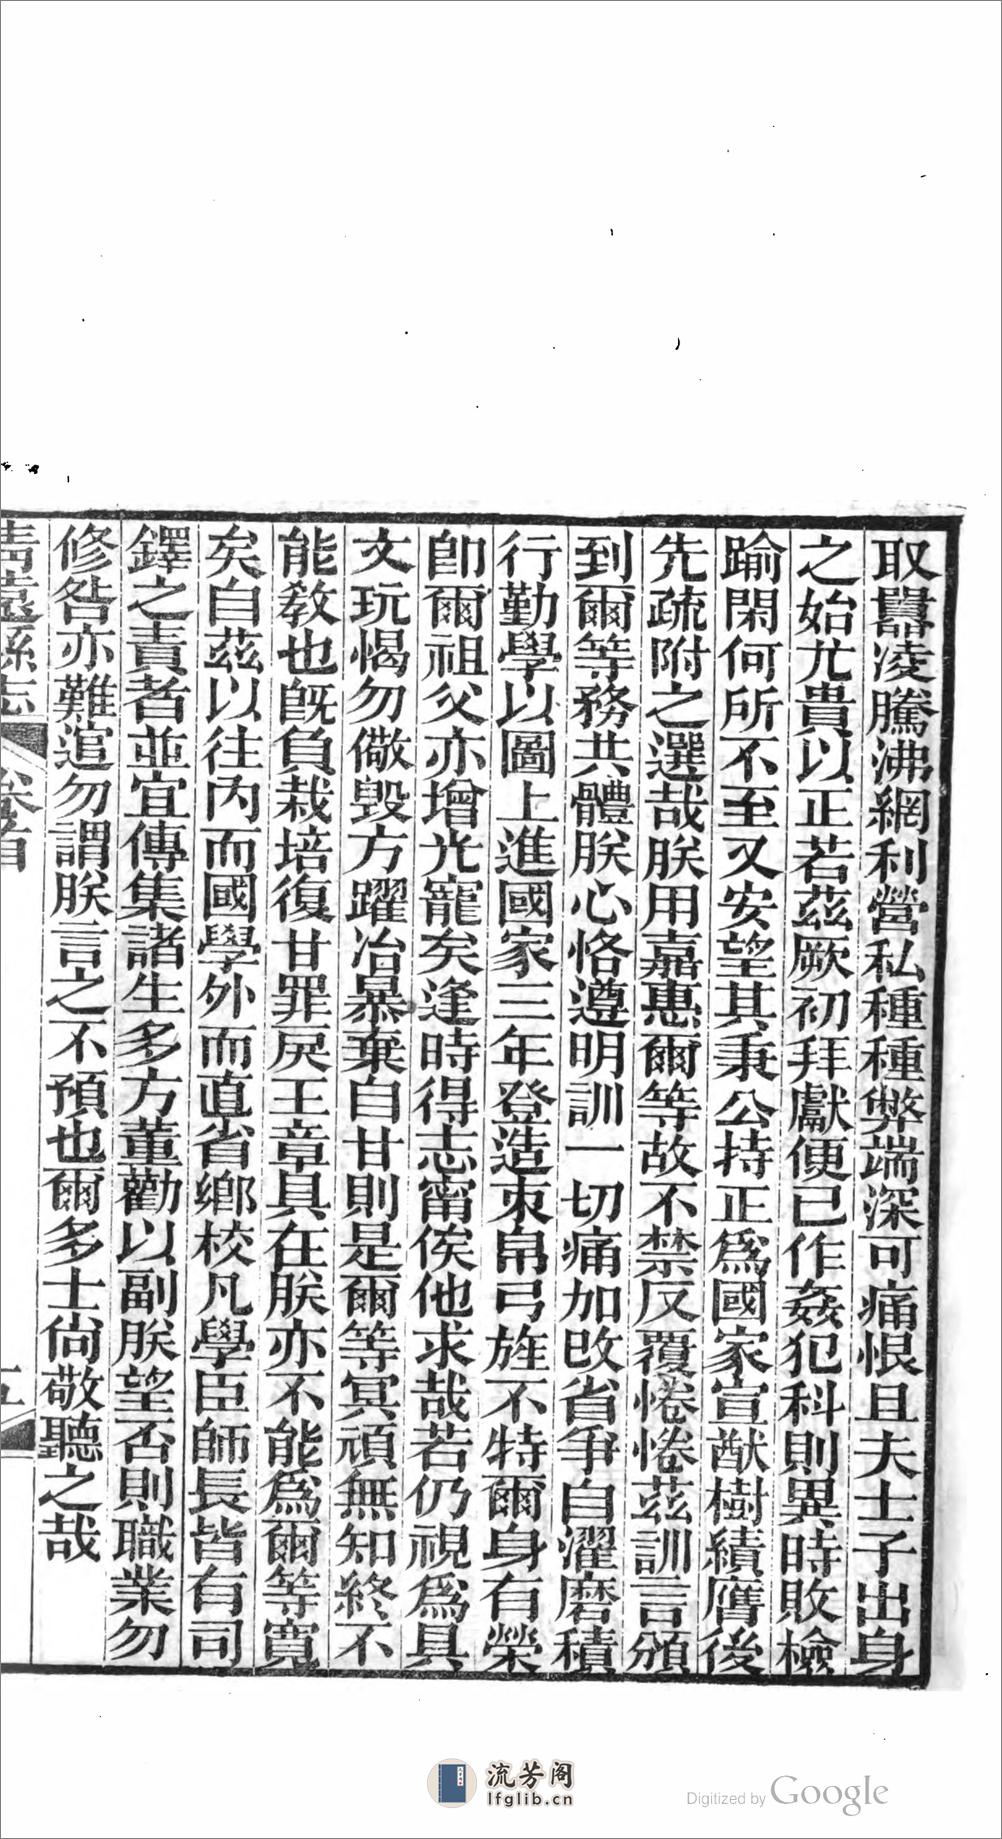 取囂凌騰沸網利營私種種弊端深可痛恨且夫士子出身
之始尤貴以正若茲厥初拜獻便已作姦犯科則異時敗檢
踰閑何所不至又安望其秉公持正爲國家宣猷樹績膺後
先疏附之選哉朕用嘉惠爾等故不禁反覆惓惓茲訓言頒
到爾等務共體朕心恪遵明訓一切痛加改省爭自濯磨積
行勤學以圖上進國家三年登造束帛弓旌不特爾身有榮
卽爾祖父亦增光寵矣逢時得志甯俟他求哉若仍視爲具
文玩愒勿儆毀方躍冶暴棄自甘則是爾等冥頑無知終不
能敎也旣負栽培復甘罪戾王章具在朕亦不能爲爾等寬
矣自茲以往內而國學外而直省鄉校凡學臣師長皆有司
鐸之責者並宜傳集諸生多方董勸以副朕望否則職業勿
修咎亦難逭勿謂朕言之不預也爾多士尙敬聽之哉
淸遠縣志 卷首 五
流芳阁
lfglib.cn
Digitized by Google